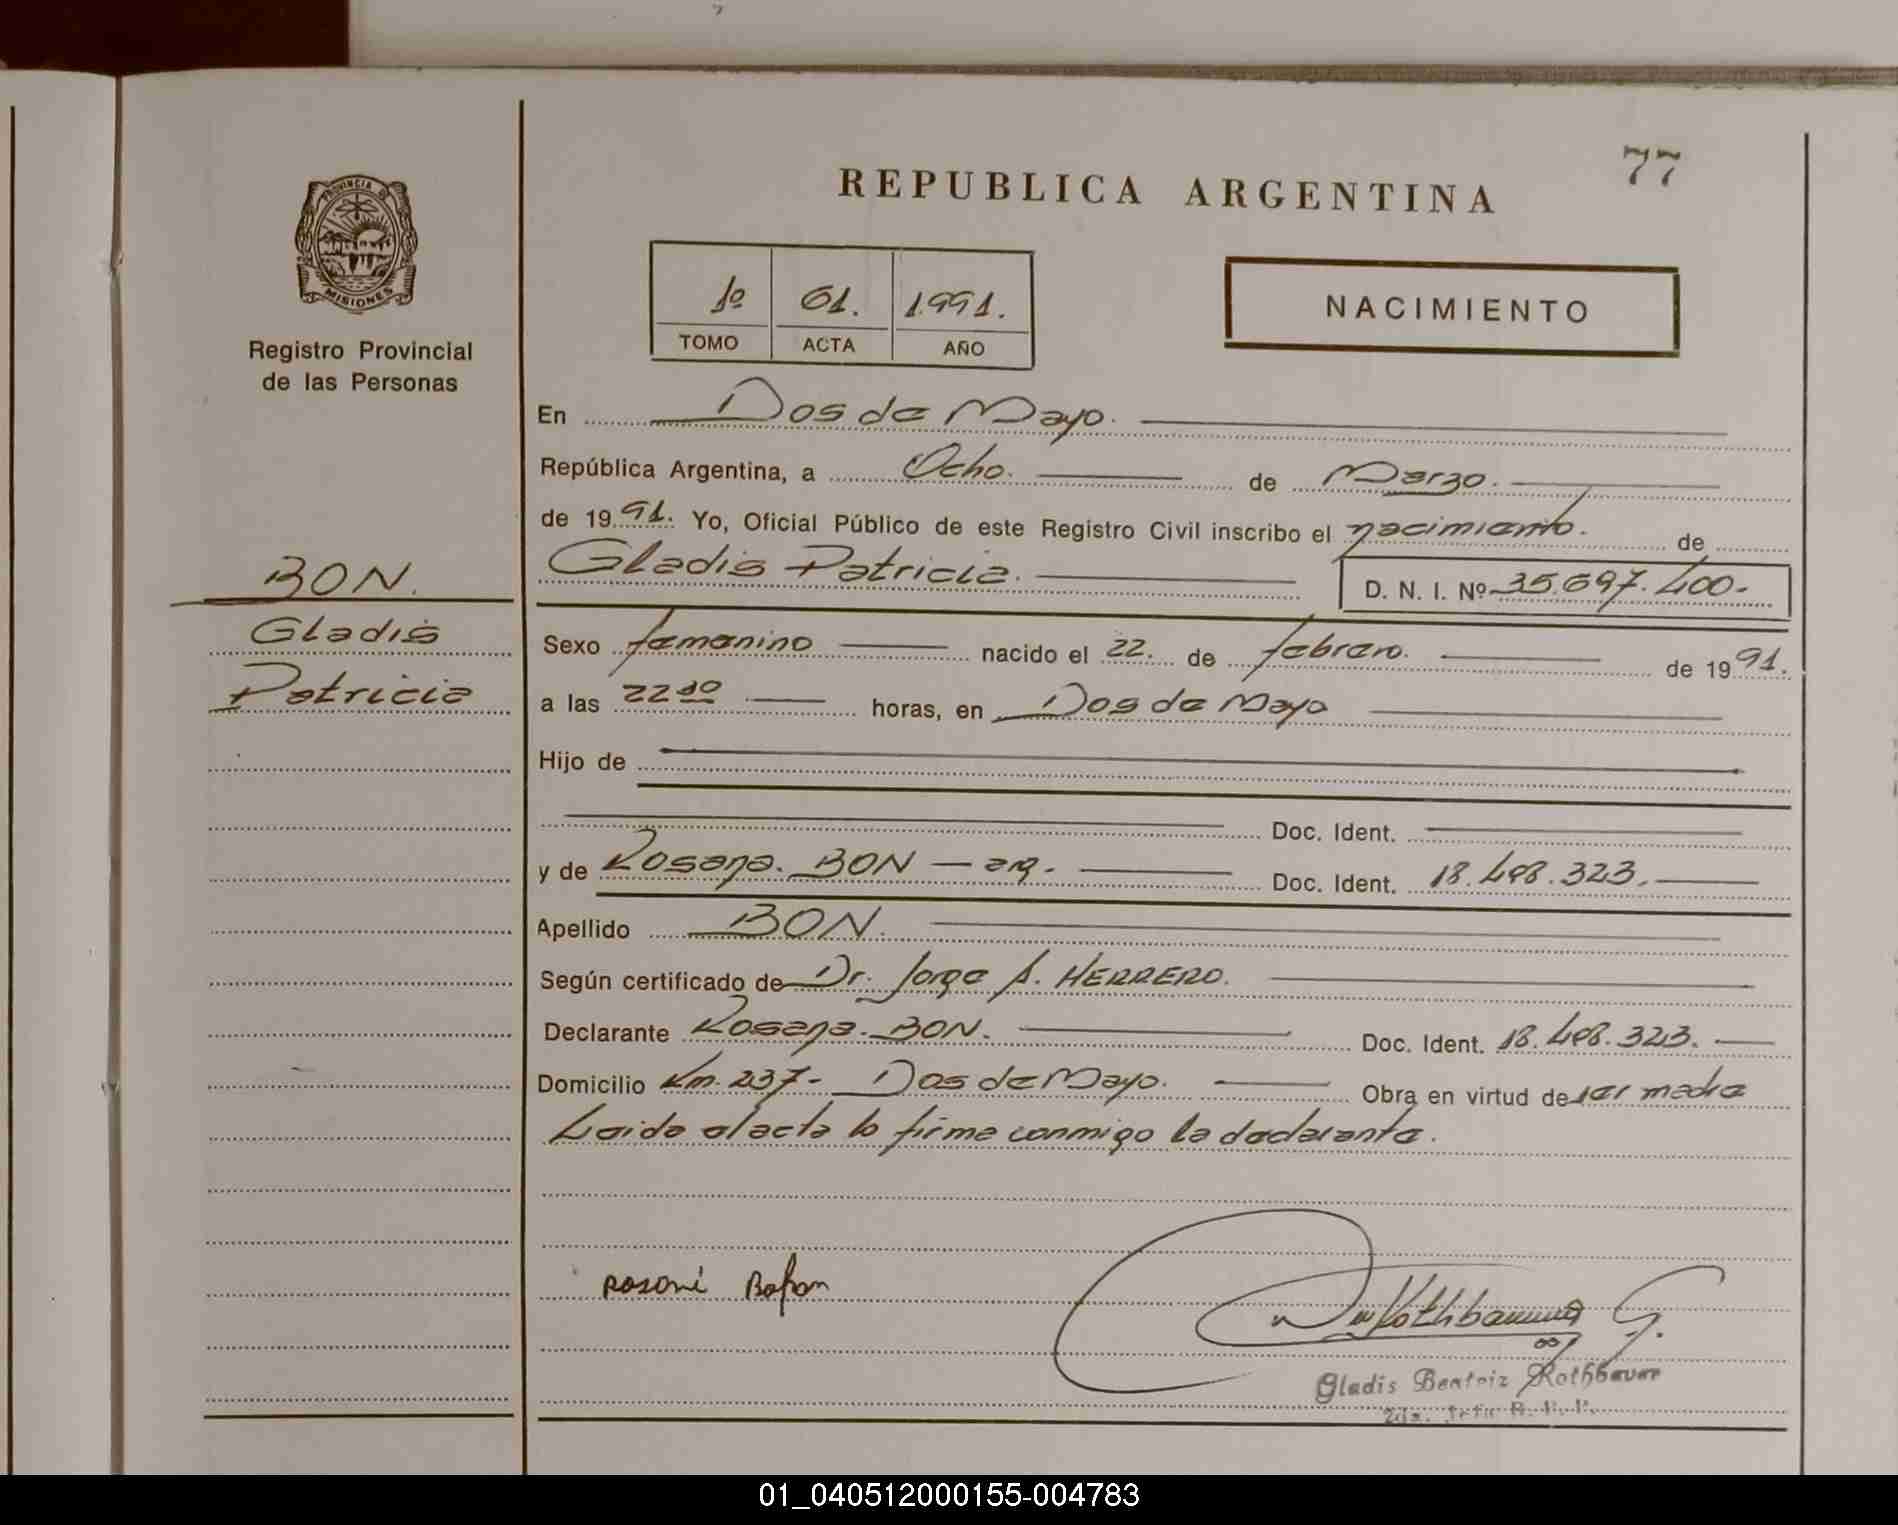 77
REPUBLICA ARGENTINA
PROVINCIA DE
MISIONES
Registro Provincial
de las Personas
1º 61. 1991.
TOMO ACTA AÑO
NACIMIENTO
En Dos de Mayo.
República Argentina, a Ocho. de Marzo.
de 1991. Yo, Oficial Público de este Registro Civil inscribo el nacimiento. de
Gladis Patricia. D. N. I. Nº 35.697.400.-
BON.
Gladis
Patricia
Sexo femenino nacido el 22. de febrero. de 1991.
a las 22 horas, en Dos de Mayo
Hijo de
Doc. Ident.
y de Rosana. BON - arg. Doc. Ident. 18.498.323.
Apellido BON.
Según certificado de Dr. Jorge A. HERRERO.
Declarante Rosana. BON. Doc. Ident. 18.498.323.
Domicilio Km. 237- Dos de Mayo. Obra en virtud de ser madre
Leida el acta lo firma conmigo la declarante.
Rothbauer G.
Gladis Beatriz Rothbauer
01_040512000155-004783